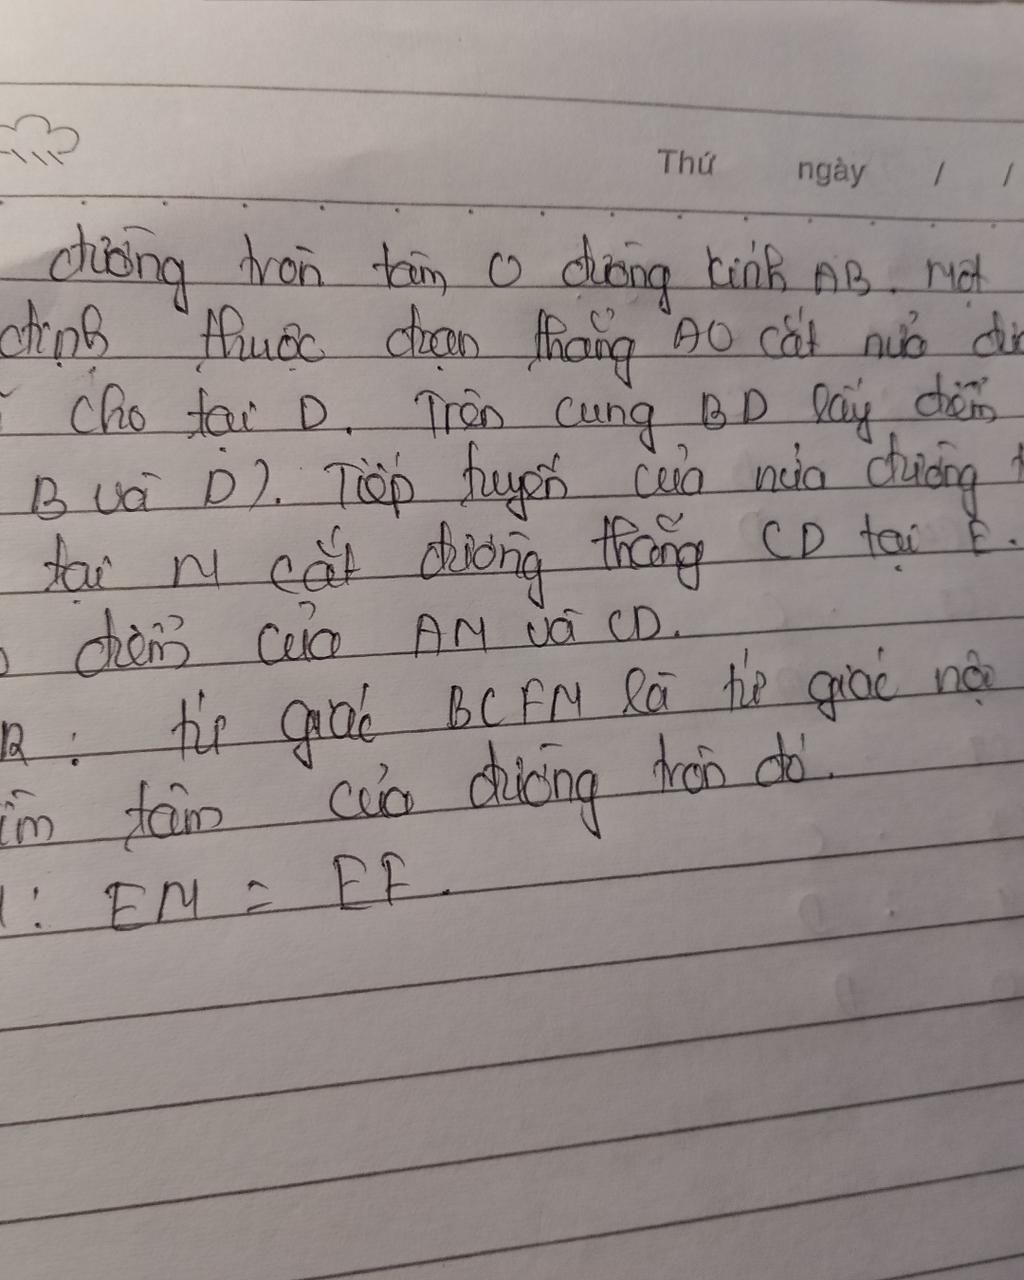 Thứ ngày / /
đường tròn tâm O đường kính AB. Một
định thuộc đoạn thẳng AO cắt nửa đư
cho tại D. Trên cung BD lấy điểm
B và D). Tiếp tuyến của nửa đường t
tại M cắt đường thẳng CD tại E.
điểm của AM và CD.
R : tứ giác BCFM là tứ giác nội
ìm tâm của đường tròn đó.
: EM = EF.